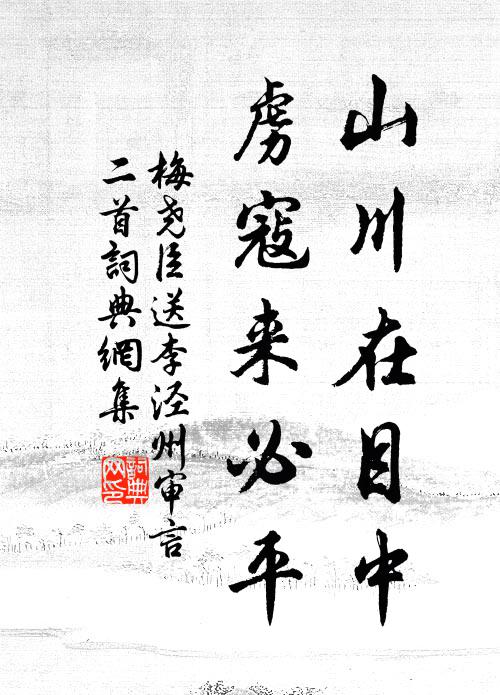 山川在目中
虏寇来必平
梅尧臣送李泾州审言
二首詞典網集
詞典网印